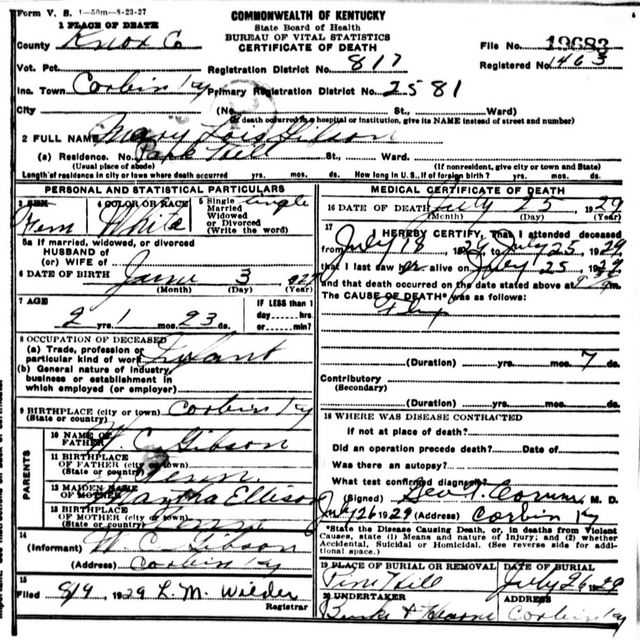 Form V. S. 1—50m—8-23-27
COMMONWEALTH OF KENTUCKY
State Board of Health
BUREAU OF VITAL STATISTICS
CERTIFICATE OF DEATH
1 PLACE OF DEATH
County Knox Co
File No. 19683
Vot. Pct. Registration District No. 817 Registered No. 1463
Inc. Town Corbin Ky Primary Registration District No. 2581
City (No. St., Ward)
(If death occurred in a hospital or institution, give its NAME instead of street and number)
2 FULL NAME Mary Gibson
(a) Residence. No. St., Ward.
(Usual place of abode) (If nonresident, give city or town and State)
Length of residence in city or town where death occurred yrs. mos. ds. How long in U. S., if of foreign birth? yrs. mos. ds.
PERSONAL AND STATISTICAL PARTICULARS
3 SEX 4 COLOR OR RACE 5 Single
Married
Widowed
or Divorced
(Write the word)
Fem White Single
5a If married, widowed, or divorced
HUSBAND of
(or) WIFE of
6 DATE OF BIRTH 3
(Month) (Day) (Year)
7 AGE IF LESS than 1
day hrs.
or min.?
2 yrs. 1 mos. 23 ds.
8 OCCUPATION OF DECEASED
(a) Trade, profession or
particular kind of work Infant
(b) General nature of industry,
business or establishment in
which employed (or employer)
9 BIRTHPLACE (city or town) Corbin Ky
(State or country)
PARENTS
10 NAME OF
FATHER W. C. Gibson
11 BIRTHPLACE
OF FATHER (city or town)
(State or country) Tenn
12 MAIDEN NAME
OF MOTHER Martha Ellison
13 BIRTHPLACE
OF MOTHER (city or town)
(State or country)
14
(Informant) W C Gibson
(Address) Corbin Ky
15
Filed 8/9 1929 L. M. Wieder
Registrar
MEDICAL CERTIFICATE OF DEATH
16 DATE OF DEATH July 25, 1929
(Month) (Day) (Year)
17 I HEREBY CERTIFY, That I attended deceased
from July 18, 1929 to July 25, 1929
that I last saw alive on July 25, 1929
and that death occurred on the date stated above at m.
The CAUSE OF DEATH* was as follows:
(Duration) yrs. mos. 7 ds.
Contributory
(Secondary)
(Duration) yrs. mos. ds.
18 WHERE WAS DISEASE CONTRACTED
If not at place of death?
Did an operation precede death? Date of
Was there an autopsy?
What test confirmed diagnosis?
(Signed) Geo. M. D.
July 26 1929 (Address) Corbin Ky
*State the Disease Causing Death, or, in deaths from Violent
Causes, state (1) Means and nature of Injury; and (2) whether
Accidental, Suicidal or Homicidal. (See reverse side for addi-
tional space.)
19 PLACE OF BURIAL OR REMOVAL DATE OF BURIAL
Pine Hill July 26 1929
20 UNDERTAKER ADDRESS
Corbin Ky